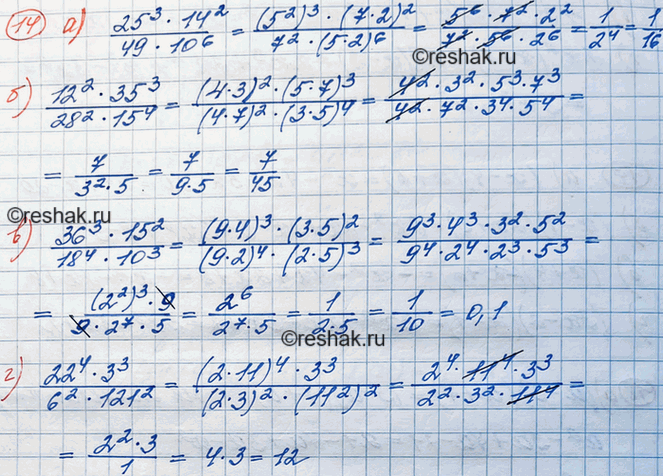 14 а) 25³·14² / 49·10⁶ = (5²)³·(7·2)² / 7²·(5·2)⁶ = 5⁶·7²·2² / 7²·5⁶·2⁶ = 1/2⁴ = 1/16
б) 12²·35³ / 28²·15⁴ = (4·3)²·(5·7)³ / (4·7)²·(3·5)⁴ = 4²·3²·5³·7³ / 4²·7²·3⁴·5⁴ =
= 7 / 3²·5 = 7 / 9·5 = 7/45
©reshak.ru
в) 36³·15² / 18⁴·10³ = (9·4)³·(3·5)² / (9·2)⁴·(2·5)³ = 9³·4³·3²·5² / 9⁴·2⁴·2³·5³ =
= (2²)³·9 / 9·2⁷·5 = 2⁶ / 2⁷·5 = 1 / 2·5 = 1/10 = 0,1
©reshak.ru
г) 22⁴·3³ / 6²·121² = (2·11)⁴·3³ / (2·3)²·(11²)² = 2⁴·11⁴·3³ / 2²·3²·11⁴ =
= 2²·3 / 1 = 4·3 = 12